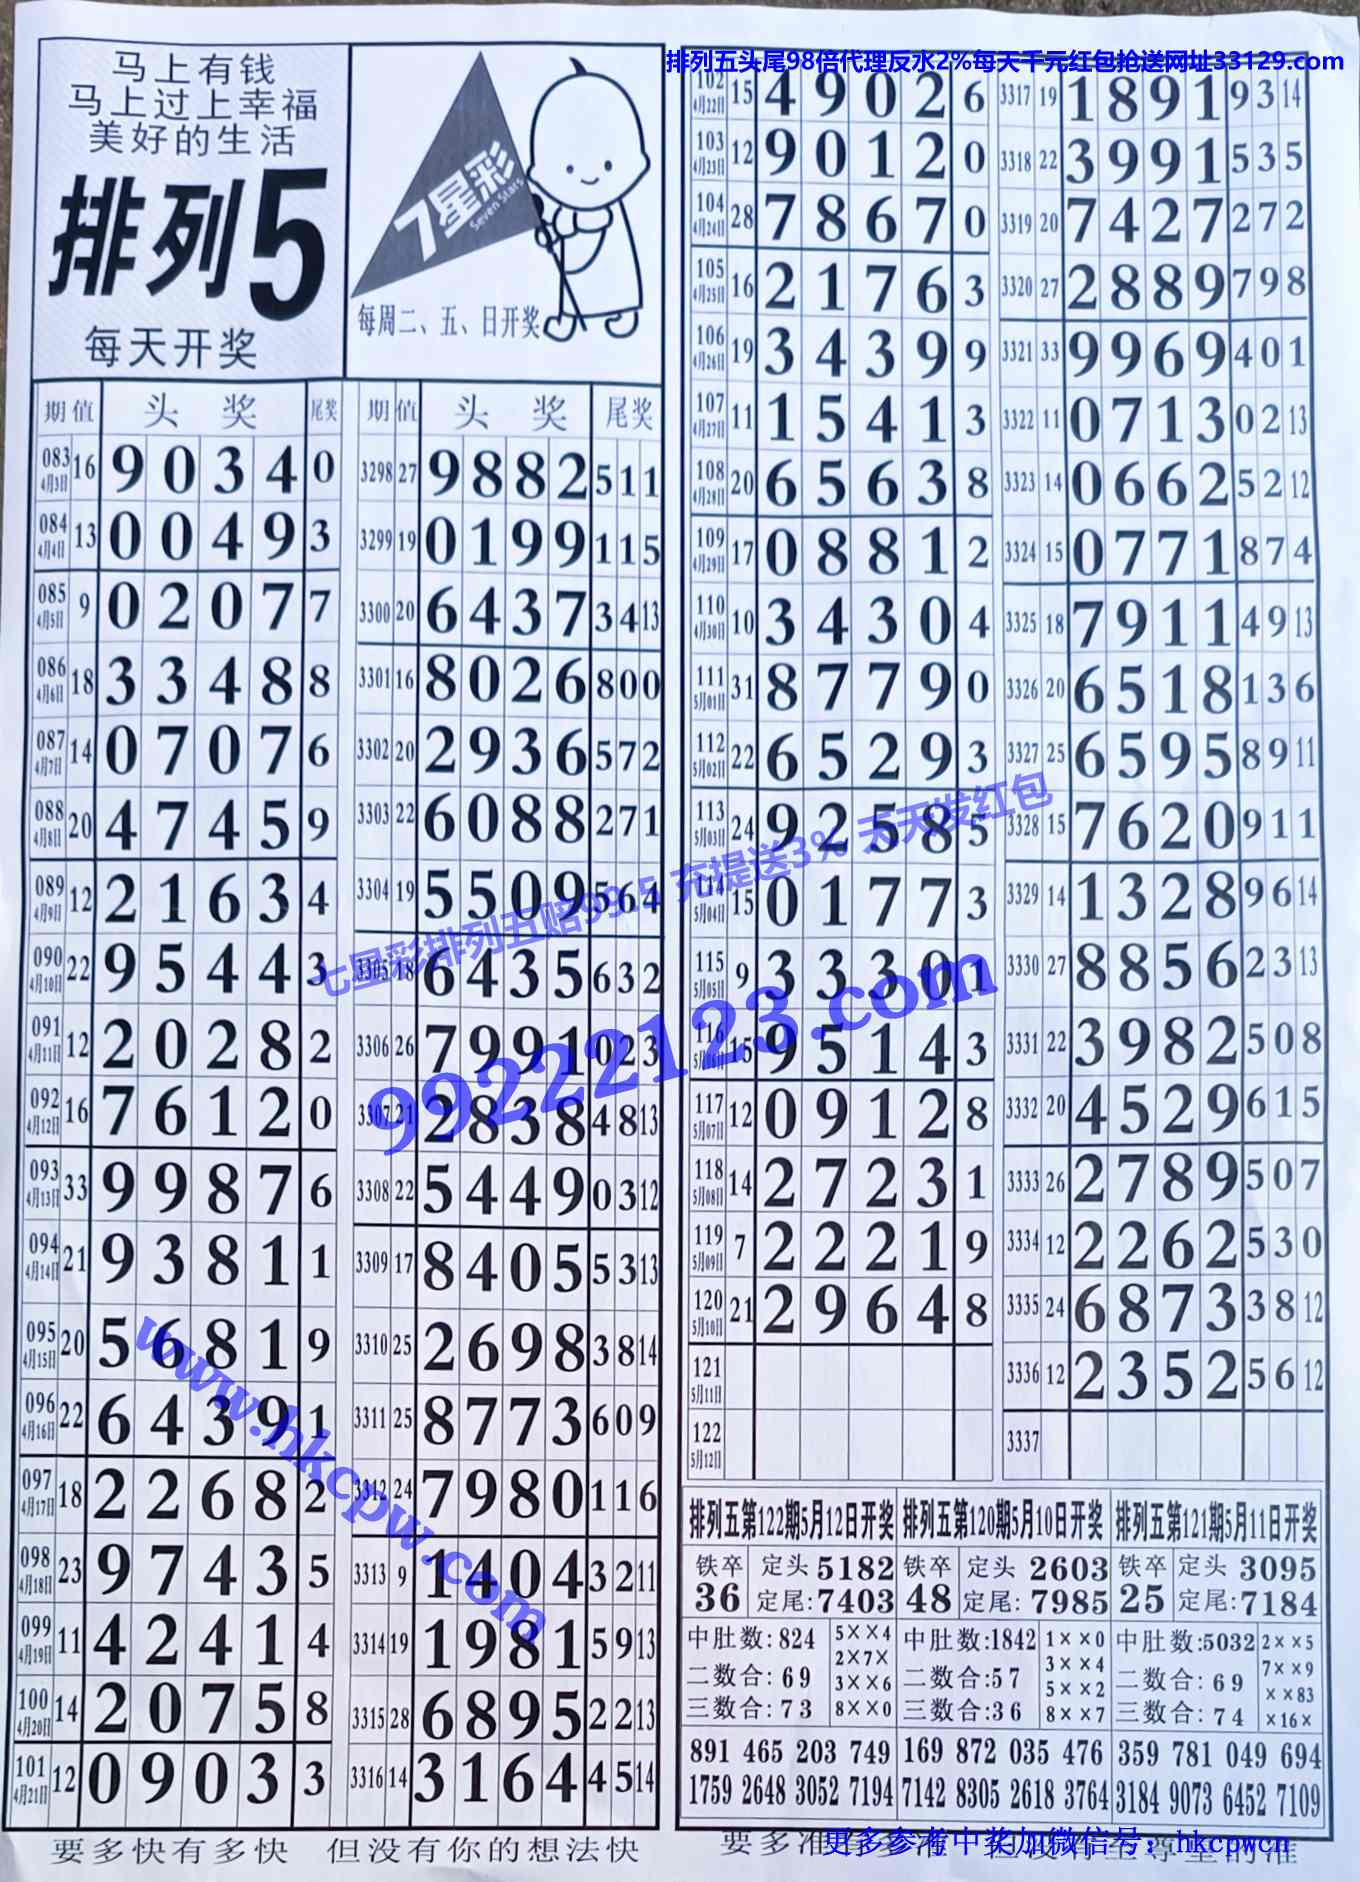 排列五头尾98倍代理反水2%每天千元红包抢送网址33129.com
马上有钱
马上过上幸福
美好的生活
排列5
每天开奖
7星彩
Seven Stars
每周二、五、日开奖
期 值 头奖 尾奖
083 4月3日 16 9 0 3 4 0
084 4月4日 13 0 0 4 9 3
085 4月5日 9 0 2 0 7 7
086 4月6日 18 3 3 4 8 8
087 4月7日 14 0 7 0 7 6
088 4月8日 20 4 7 4 5 9
089 4月9日 12 2 1 6 3 4
090 4月10日 22 9 5 4 4 3
091 4月11日 12 2 0 2 8 2
092 4月12日 16 7 6 1 2 0
093 4月13日 33 9 9 8 7 6
094 4月14日 21 9 3 8 1 1
095 4月15日 20 5 6 8 1 9
096 4月16日 22 6 4 3 9 1
097 4月17日 18 2 2 6 8 2
098 4月18日 23 9 7 4 3 5
099 4月19日 11 4 2 4 1 4
100 4月20日 14 2 0 7 5 8
101 4月21日 12 0 9 0 3 3
期 值 头奖 尾奖
3298 27 9 8 8 2 5 1 1
3299 19 0 1 9 9 1 1 5
3300 20 6 4 3 7 3 4 13
3301 16 8 0 2 6 8 0 0
3302 20 2 9 3 6 5 7 2
3303 22 6 0 8 8 2 7 1
3304 19 5 5 0 9 5 6 4
3305 18 6 4 3 5 6 3 2
3306 26 7 9 9 1 0 2 3
3307 21 2 8 3 8 4 8 13
3308 22 5 4 4 9 0 3 12
3309 17 8 4 0 5 5 3 13
3310 25 2 6 9 8 3 8 14
3311 25 8 7 7 3 6 0 9
3312 24 7 9 8 0 1 1 6
3313 9 1 4 0 4 3 2 11
3314 19 1 9 8 1 5 9 13
3315 28 6 8 9 5 2 2 13
3316 14 3 1 6 4 4 5 14
102 4月22日 15 4 9 0 2 6
103 4月23日 12 9 0 1 2 0
104 4月24日 28 7 8 6 7 0
105 4月25日 16 2 1 7 6 3
106 4月26日 19 3 4 3 9 9
107 4月27日 11 1 5 4 1 3
108 4月28日 20 6 5 6 3 8
109 4月29日 17 0 8 8 1 2
110 4月30日 10 3 4 3 0 4
111 5月01日 31 8 7 7 9 0
112 5月02日 22 6 5 2 9 3
113 5月03日 24 9 2 5 8 5
114 5月04日 15 0 1 7 7 3
115 5月05日 9 3 3 3 0 1
116 5月06日 15 9 5 1 4 3
117 5月07日 12 0 9 1 2 8
118 5月08日 14 2 7 2 3 1
119 5月09日 7 2 2 2 1 9
120 5月10日 21 2 9 6 4 8
121 5月11日
122 5月12日
3317 19 1 8 9 1 9 3 14
3318 22 3 9 9 1 5 3 5
3319 20 7 4 2 7 2 7 2
3320 27 2 8 8 9 7 9 8
3321 33 9 9 6 9 4 0 1
3322 11 0 7 1 3 0 2 13
3323 14 0 6 6 2 5 2 12
3324 15 0 7 7 1 8 7 4
3325 18 7 9 1 1 4 9 13
3326 20 6 5 1 8 1 3 6
3327 25 6 5 9 5 8 9 11
3328 15 7 6 2 0 9 1 1
3329 14 1 3 2 8 9 6 14
3330 27 8 8 5 6 2 3 13
3331 22 3 9 8 2 5 0 8
3332 20 4 5 2 9 6 1 5
3333 26 2 7 8 9 5 0 7
3334 12 2 2 6 2 5 3 0
3335 24 6 8 7 3 3 8 12
3336 12 2 3 5 2 5 6 12
3337
七星彩排列五赔99.5 充提送3% 天天发红包
99222123.com
www.hkcpw.com
排列五第122期5月12日开奖
铁卒 定头 5182
36 定尾:7403
中肚数:824
二数合:69
三数合:73
5××4
2×7×
3××6
8××0
891 465 203 749
1759 2648 3052 7194
排列五第120期5月10日开奖
铁卒 定头 2603
48 定尾:7985
中肚数:1842
二数合:57
三数合:36
1××0
3××4
5××2
8××7
169 872 035 476
7142 8305 2618 3764
排列五第121期5月11日开奖
铁卒 定头 3095
25 定尾:7184
中肚数:5032
二数合:69
三数合:74
2××5
7××9
××83
×16×
359 781 049 694
3184 9073 6452 7109
要多快有多快 但没有你的想法快
更多参考中奖加微信号：hkcpwcn